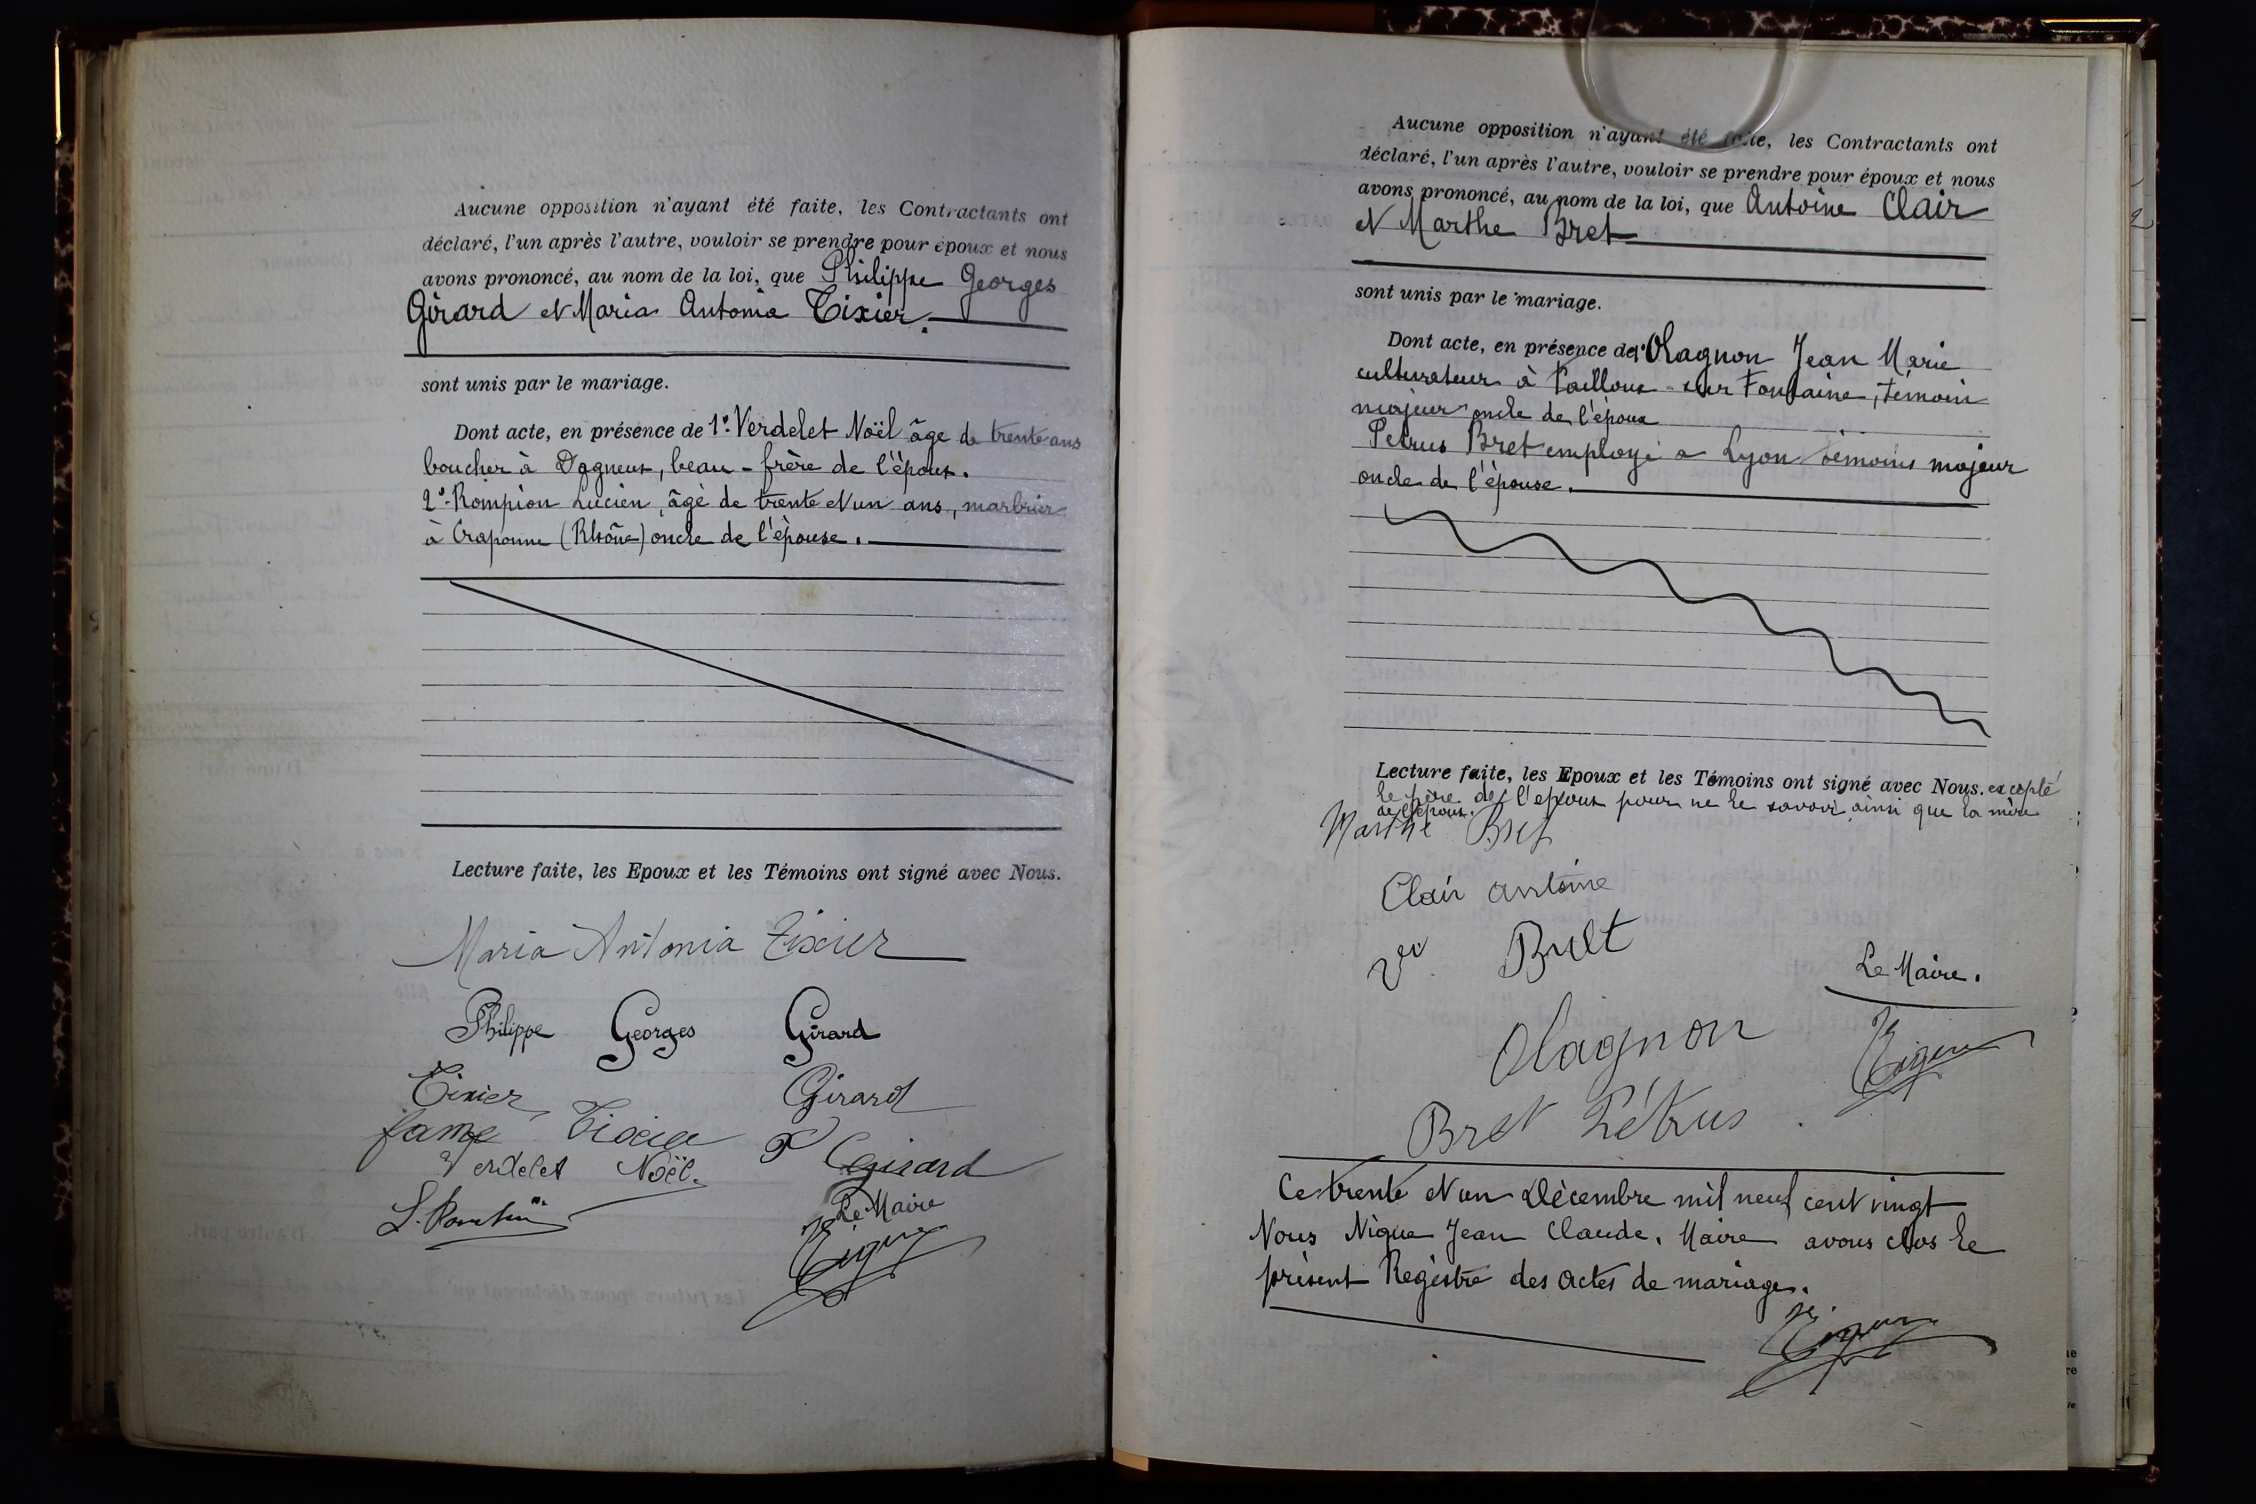 Aucune opposition n'ayant été faite, les Contractants ont
déclaré, l'un après l'autre, vouloir se prendre pour époux et nous
avons prononcé, au nom de la loi, que Philippe Georges
Girard et Maria Antonia Tixier.
sont unis par le mariage.
Dont acte, en présence de 1º. Verdelet Noël âge de trente ans
boucher à Dagneux, beau-frère de l'époux.
2º. Rompion Lucien, âgé de trente et un ans, marbrier
à Craponne (Rhône) oncle de l'épouse.
Lecture faite, les Epoux et les Témoins ont signé avec Nous.
Maria Antonia Tixier
Philippe Georges Girard
Tixier Girard
Tixier Girard
Verdelet Noël.
Le Maire
Aucune opposition n'ayant été faite, les Contractants ont
déclaré, l'un après l'autre, vouloir se prendre pour époux et nous
avons prononcé, au nom de la loi, que Antoine Clair
et Marthe Bret
sont unis par le mariage.
Dont acte, en présence de 1º Olagnon Jean Marie
cultivateur à sur Fontaine, témoin
majeur oncle de l'époux
Petrus Bret employé a Lyon témoins majeur
oncle de l'épouse.
Lecture faite, les Epoux et les Témoins ont signé avec Nous. excepté
le père de l'époux pour ne le savoir ainsi que la mère
de l'époux.
Marthe Bret
Clair antoine
Vve Bret
Le Maire.
Olagnon
Bret Pétrus
Ce trente et un Décembre mil neuf cent vingt
Nous Nigue Jean Claude, Maire avons clos le
présent Régistre des actes de mariage.